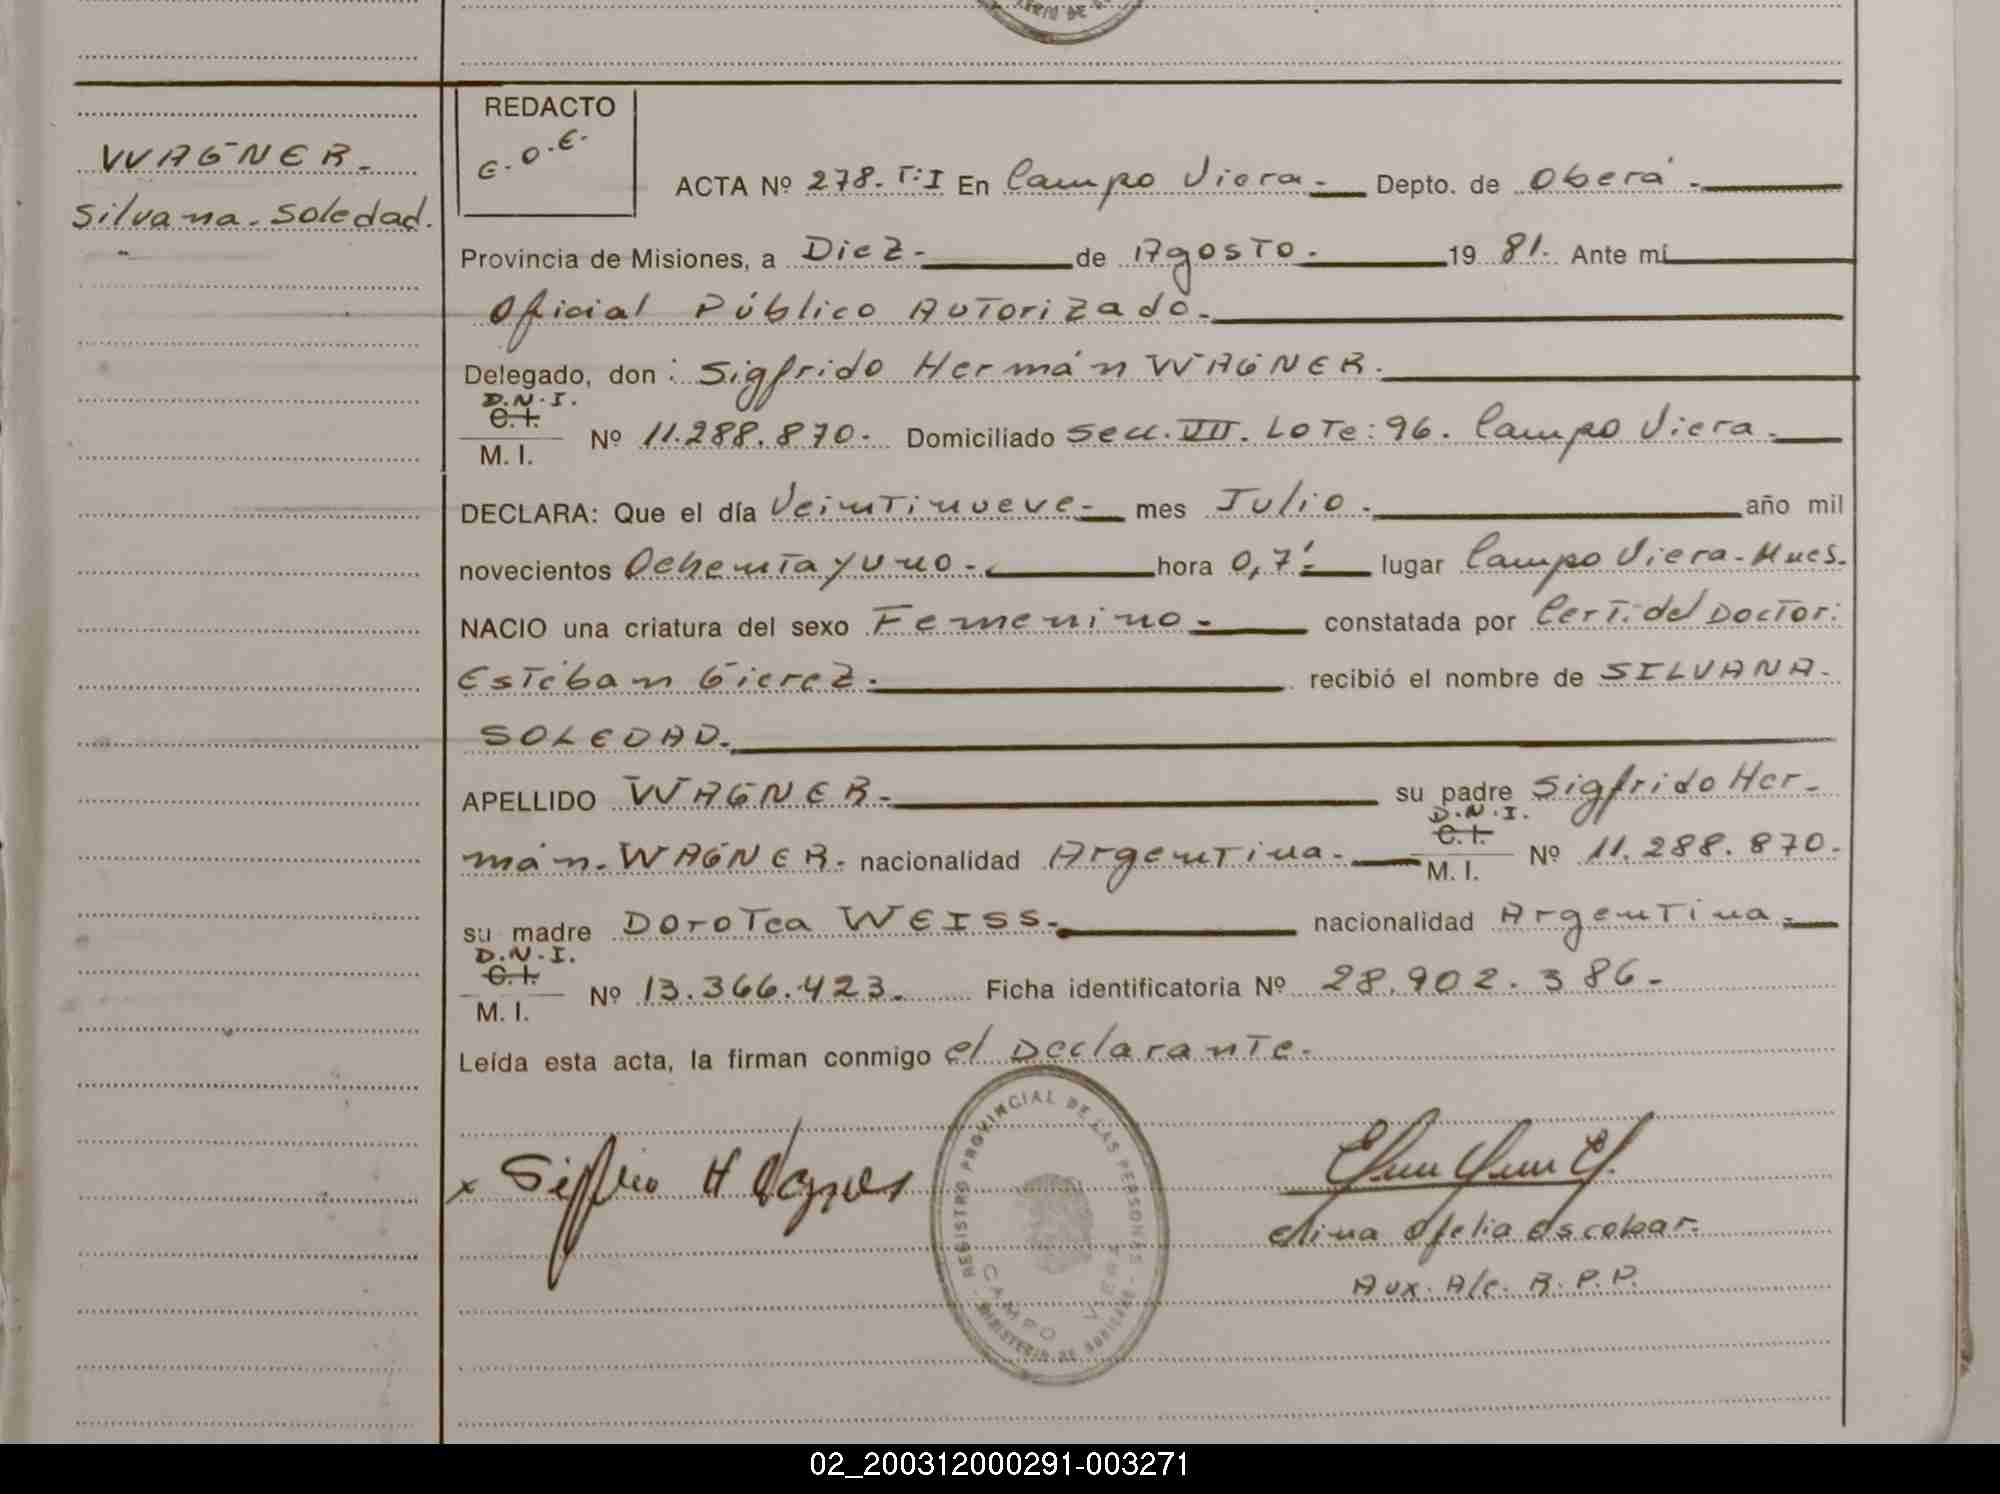 WAGNER.
Silvana. Soledad.
REDACTO
E.O.E.
ACTA Nº 278. T:I En Campo Viera.- Depto. de Oberá.-
Provincia de Misiones, a Diez.- de Agosto.- 19 81. Ante mí
Oficial Público Autorizado.-
Delegado, don : Sigfrido Hermán WAGNER.
D.N.I.
C.I.
M. I. Nº 11.288.870.- Domiciliado Secc. VII. Lote: 96. Campo Viera.-
DECLARA: Que el día Veintinueve.- mes Julio.- año mil
novecientos Ochenta y uno.- hora 0,7'- lugar Campo Viera- Mnes.
NACIO una criatura del sexo Femenino.- constatada por Cert. del Doctor:
Estéban Gierez.- recibió el nombre de SILVANA.
SOLEDAD.-
APELLIDO WAGNER.- su padre Sigfrido Her-
mán. WAGNER. nacionalidad Argentina.-
D.N.I.
C.I.
M. I. Nº 11.288.870.
su madre Dorotea WEISS.- nacionalidad Argentina.-
D.N.I.
C.I.
M. I. Nº 13.366.423. Ficha identificatoria Nº 28.902.386.-
Leída esta acta, la firman conmigo el Declarante.
x Sigfrido H Wagner
REGISTRO PROVINCIAL DE LAS PERSONAS
CAMPO VIERA
MINISTERIO DE GOBIERNO
Elina Ofelia Escobar.
Aux. A/c. R.P.P.
02_200312000291-003271